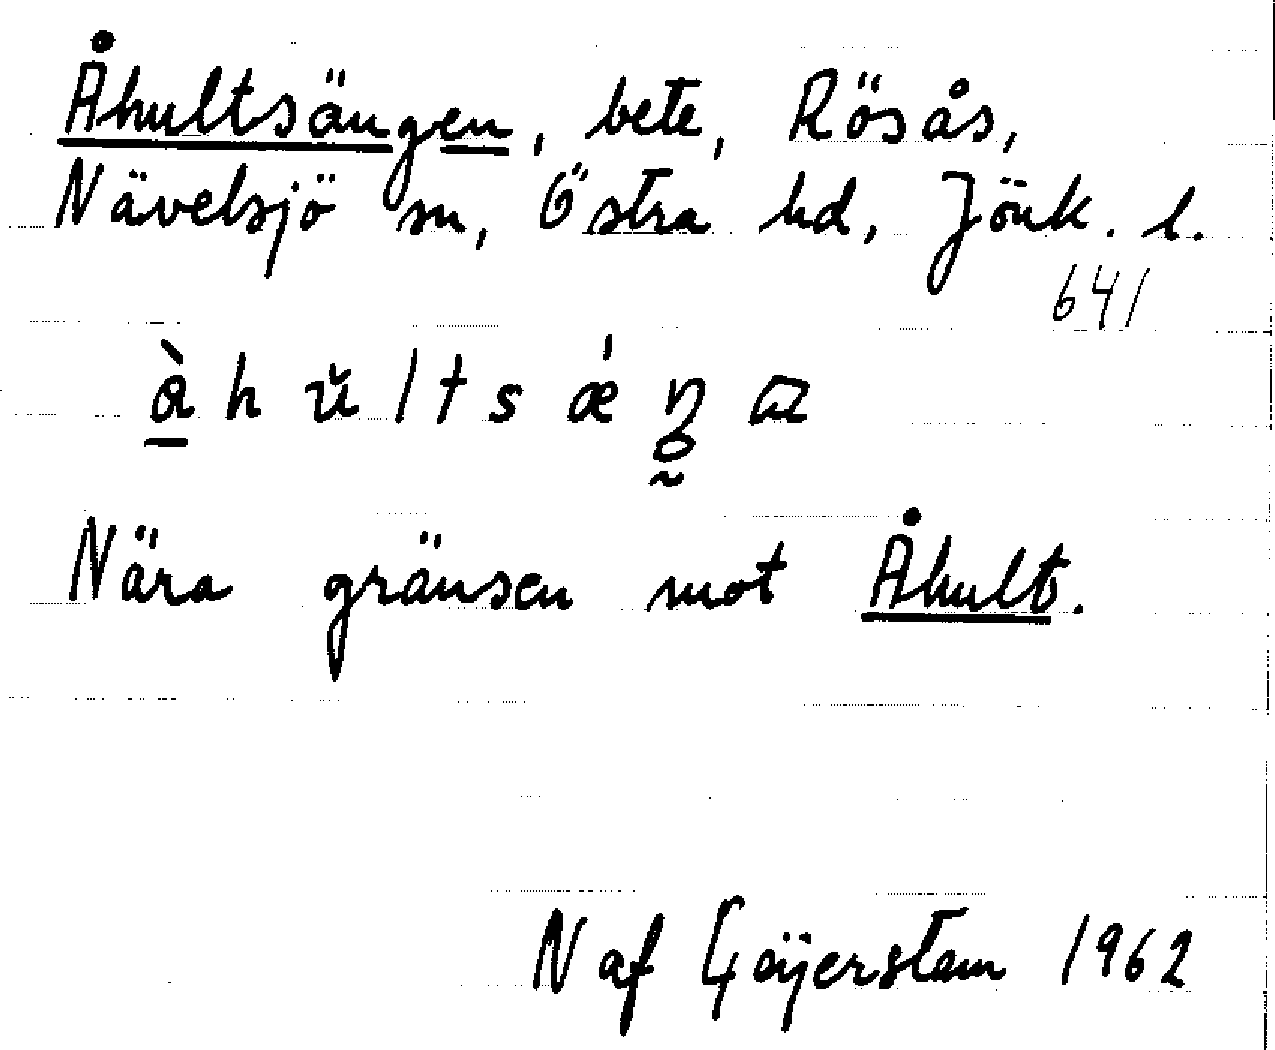 Åhultsängen, bete, Rösås,
Nävelsjö sn, Östra hd, Jönk. l.
641
Nära gränsen mot Åhult.
N af Geijerstam 1962